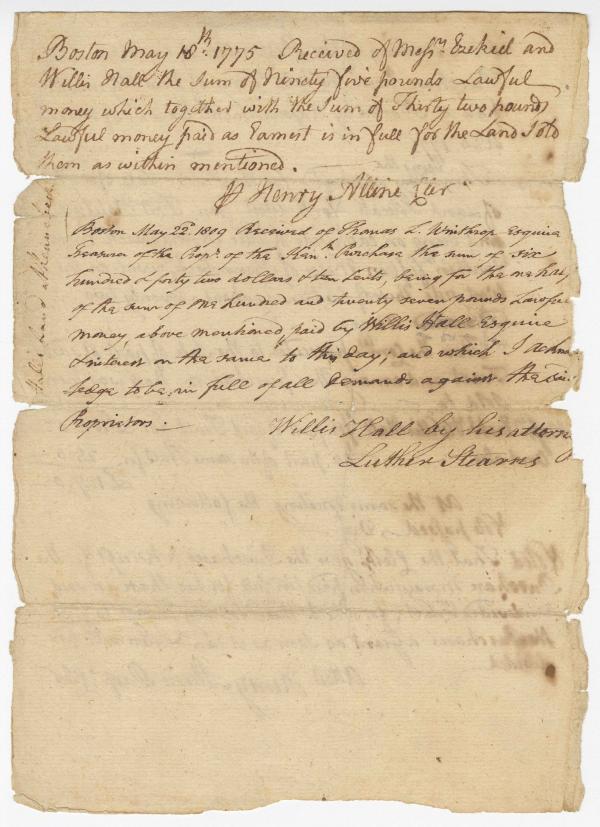 Boston May 18th. 1775 Received of Messrs Ezekiel and
Willis Hall the Sum of Ninety five pounds Lawful
money which together with the Sum of Thirty two pounds
Lawful money paid as Earnest is in full for the Land Sold
them as within mentioned.
Henry Alline Cler
Boston May 22d. 1819 Received of Thomas L. Winthrop Esquire
Treasurer of the Propr. of the Kenk. Purchase the sum of six
hundred & forty two dollars & ten Cents, being for the
of the sum of one hundred and twenty seven pounds Lawful
money, above mentioned paid by Willis Hall Esquire
& interest on the same to this day; and which I ackno
ledge to be, in full of all Demands against the
Proprietors.
Willis Hall by his attorn
Luther Stearns
Hall's land at Kennebeck
At the same meeting the following
Voted That the